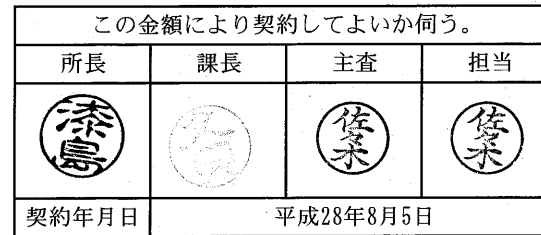 この金額により契約してよいか伺う。
所長 課長 主査 担当
漆島 佐々木 佐々木
契約年月日 平成28年8月5日